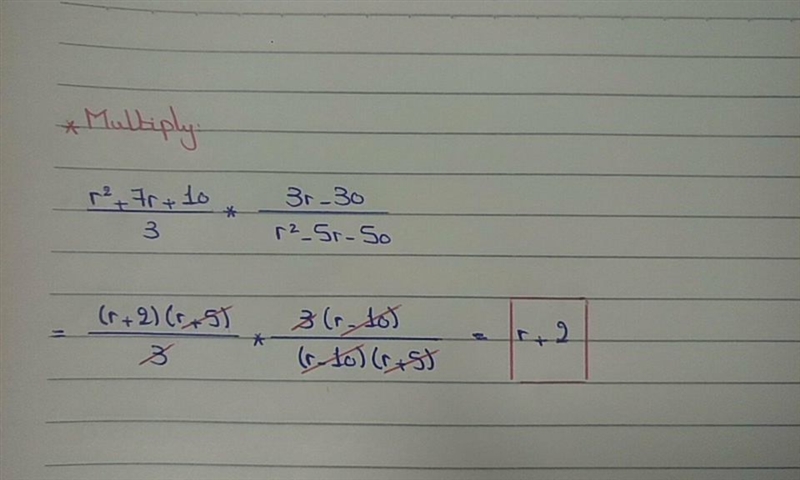 * Multiply:
r²+7r+10 / 3 * 3r-30 / r²-5r-50
= (r+2)(r+5) / 3 * 3(r-10) / (r-10)(r+5) = r+2